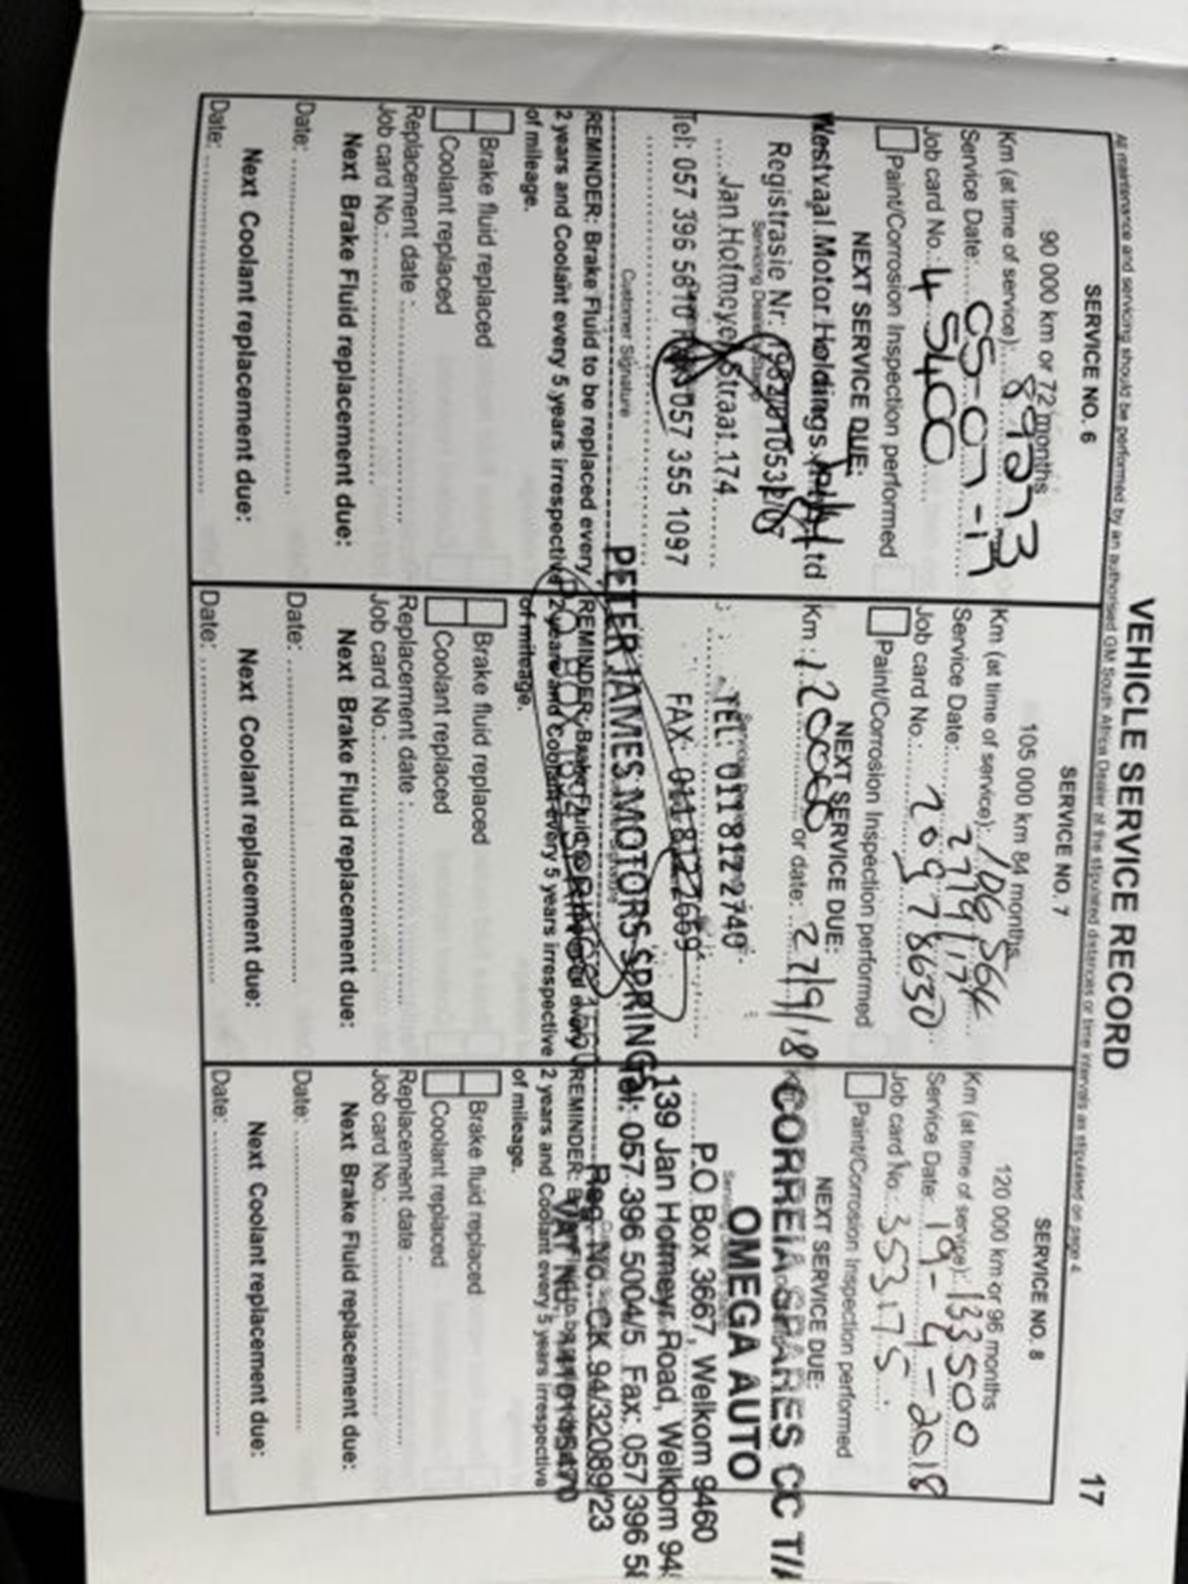 17
VEHICLE SERVICE RECORD
All maintenance and servicing should be performed by an authorised GM South Africa Dealer at the stipulated distances or time intervals as stipulated on page 4
SERVICE NO. 6
90 000 km or 72 months
Km (at time of service):
Service Date:
Job card No.: 45400
Paint/Corrosion Inspection performed
NEXT SERVICE DUE:
Westvaal Motor Holdings Ltd
Registrasie Nr:
Servicing Dealer
Jan Hofmeyer Straat 174
Tel: 057 396 5810 057 355 1097
Customer Signature
REMINDER: Brake Fluid to be replaced every
2 years and Coolant every 5 years irrespective
of mileage.
Brake fluid replaced
Coolant replaced
Replacement date :
Job card No.:
Next Brake Fluid replacement due:
Date:
Next Coolant replacement due:
Date:
SERVICE NO. 7
105 000 km 84 months
Km (at time of service): 106 564
Service Date: 27/9/17
Job card No.: 209 78630
Paint/Corrosion Inspection performed
NEXT SERVICE DUE:
Km : 120000 or date: 27/9/18
TEL: 011 812 2740
FAX: 011 812 2669
PETER JAMES MOTORS SPRINGS
P O BOX SPRINGS 1560
REMINDER: Brake Fluid every
2 years and Coolant every 5 years irrespective
of mileage.
Brake fluid replaced
Coolant replaced
Replacement date :
Job card No.:
Next Brake Fluid replacement due:
Date:
Next Coolant replacement due:
Date:
SERVICE NO. 8
120 000 km or 96 months
Km (at time of service): 133500
Service Date: 19-4-2018
Job card No.: 353175
Paint/Corrosion Inspection performed
NEXT SERVICE DUE:
CORREIA SPARES CC T/A
OMEGA AUTO
P.O Box 3667, Welkom 9460
139 Jan Hofmeyr Road, Welkom
Tel: 057 396 5004/5 Fax: 057 396
Reg. No. CK 94/32089/23
VAT No.
REMINDER:
2 years and Coolant every 5 years irrespective
of mileage.
Brake fluid replaced
Coolant replaced
Replacement date :
Job card No.:
Next Brake Fluid replacement due:
Date:
Next Coolant replacement due:
Date: